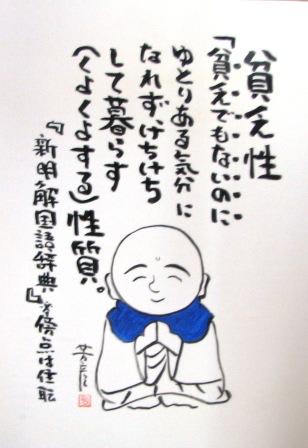 貧乏性
「貧乏でもないのに
ゆとりある気分に
なれず、けちけち
して暮らす
(くよくよする)性質。
『新明解国語辞典』傍点は住職